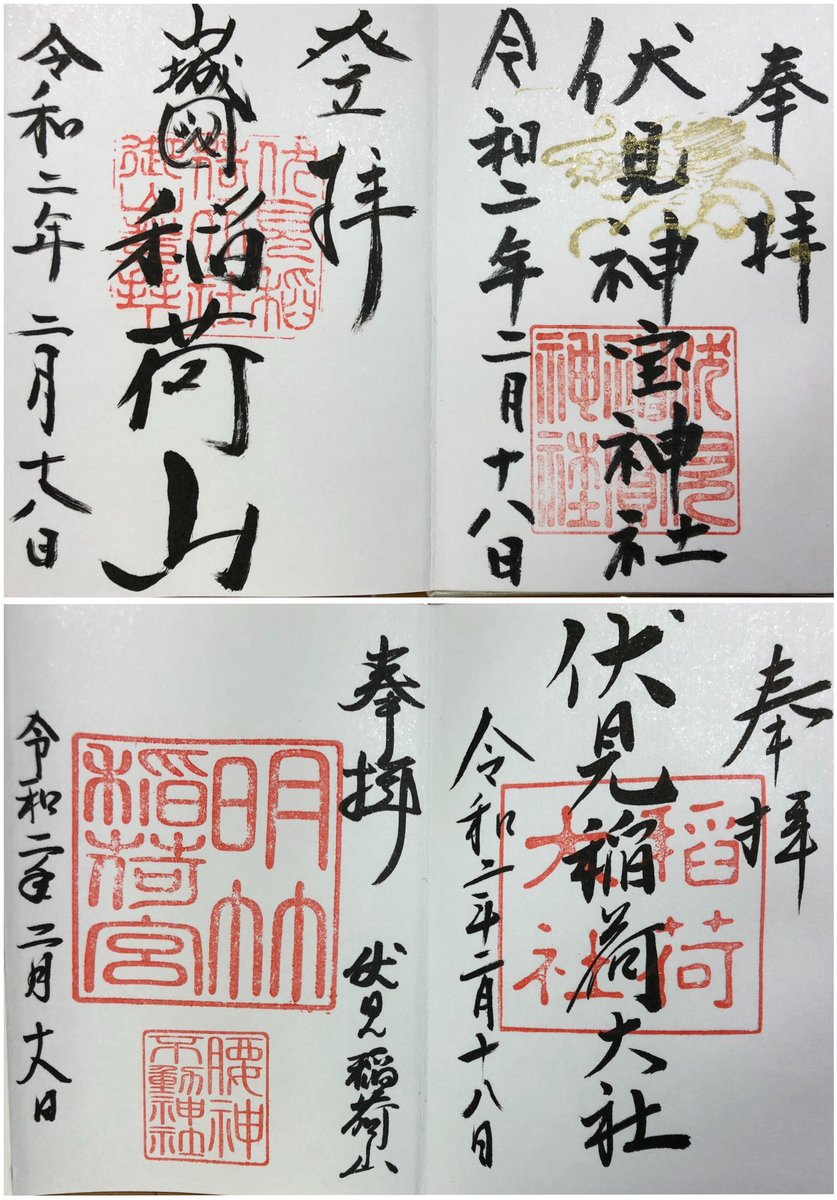 奉拝
伏見神宝神社
伏見
神寳
神社
令和二年二月十八日
登拝
山城國
稲荷山
令和二年二月十八日
奉拝
伏見稲荷大社
稲荷
大社
令和二年二月十八日
奉拝
伏見稲荷山
明竹
稲荷宮
腰神
不動神社
令和二年二月十八日